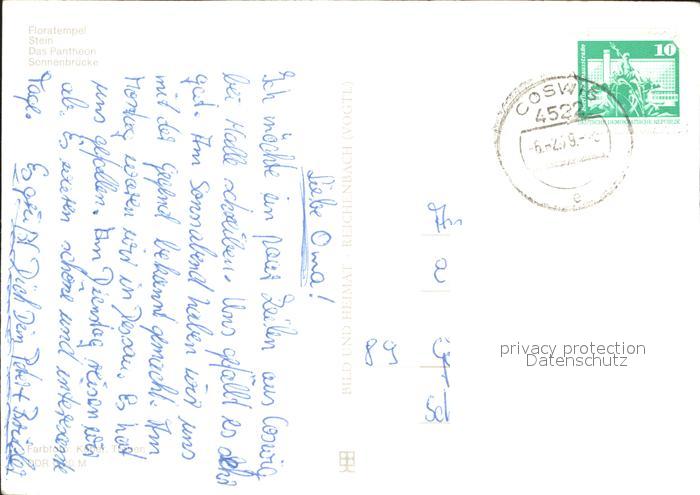 Floratempel
Stein
Das Pantheon
Sonnenbrücke
Liebe Oma!
Ich möchte ein paar Zeilen aus Coswig
bei Halle schreiben. Uns gefällt es sehr
gut. Am Sonnabend haben wir uns
mit der Gegend bekannt gemacht. Am
Montag waren wir in Dessau. Es hat
uns gefallen. Am Dienstag reisen wir
ab. Es waren schöne und interessante
Tage. Es grüßt Dich Dein Peter +
BILD UND HEIMAT · REICHENBACH (VOGTL)
10
DEUTSCHE DEMOKRATISCHE REPUBLIK
COSWIG
4522
e
An
89
privacy protection
Datenschutz